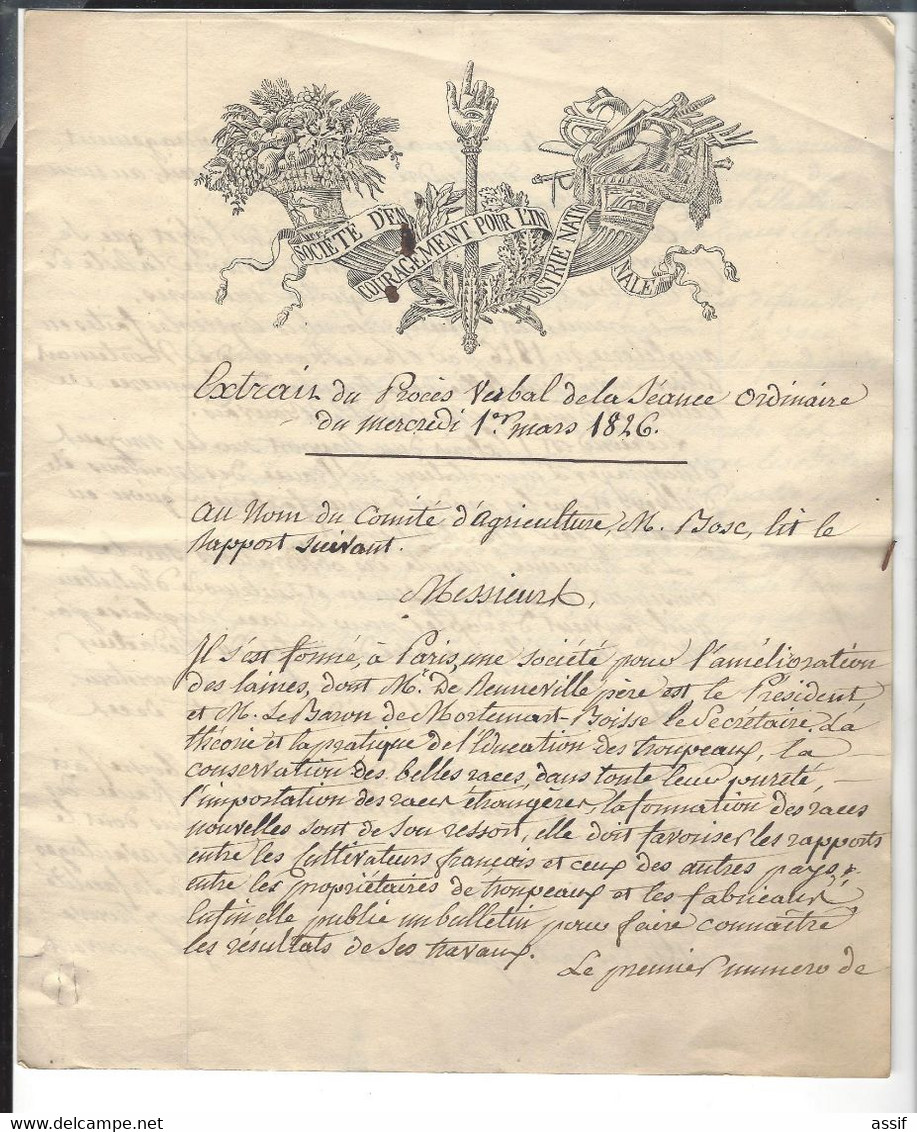 SOCIÉTÉ D'EN
COURAGEMENT POUR L'IN
DUSTRIE NATIO
NALE
Extrait du Procès Verbal de la Séance Ordinaire
du mercredi 1er mars 1826.
au Nom du Comité d'Agriculture, M. Bosc, lit le
Rapport suivant.
Messieurs,
Il s'est formé, à Paris, une société pour l'amélioration
des laines, dont Mr. De Neuneville père est le Président
et M. Le Baron de Mortemart-Boisse le Secrétaire. La
théorie et la pratique de l'Education des troupeaux, la
conservation des belles races, dans toute leur pureté,
l'importation des races étrangères, la formation des races
nouvelles sont de son ressort, elle doit favoriser les rapports
entre les Cultivateurs français et ceux des autres pays;
entre les propriétaires de troupeaux et les fabricants
Enfin elle publie un bulletin pour faire connaître
les résultats de ses travaux.
Le premier numero de
assif